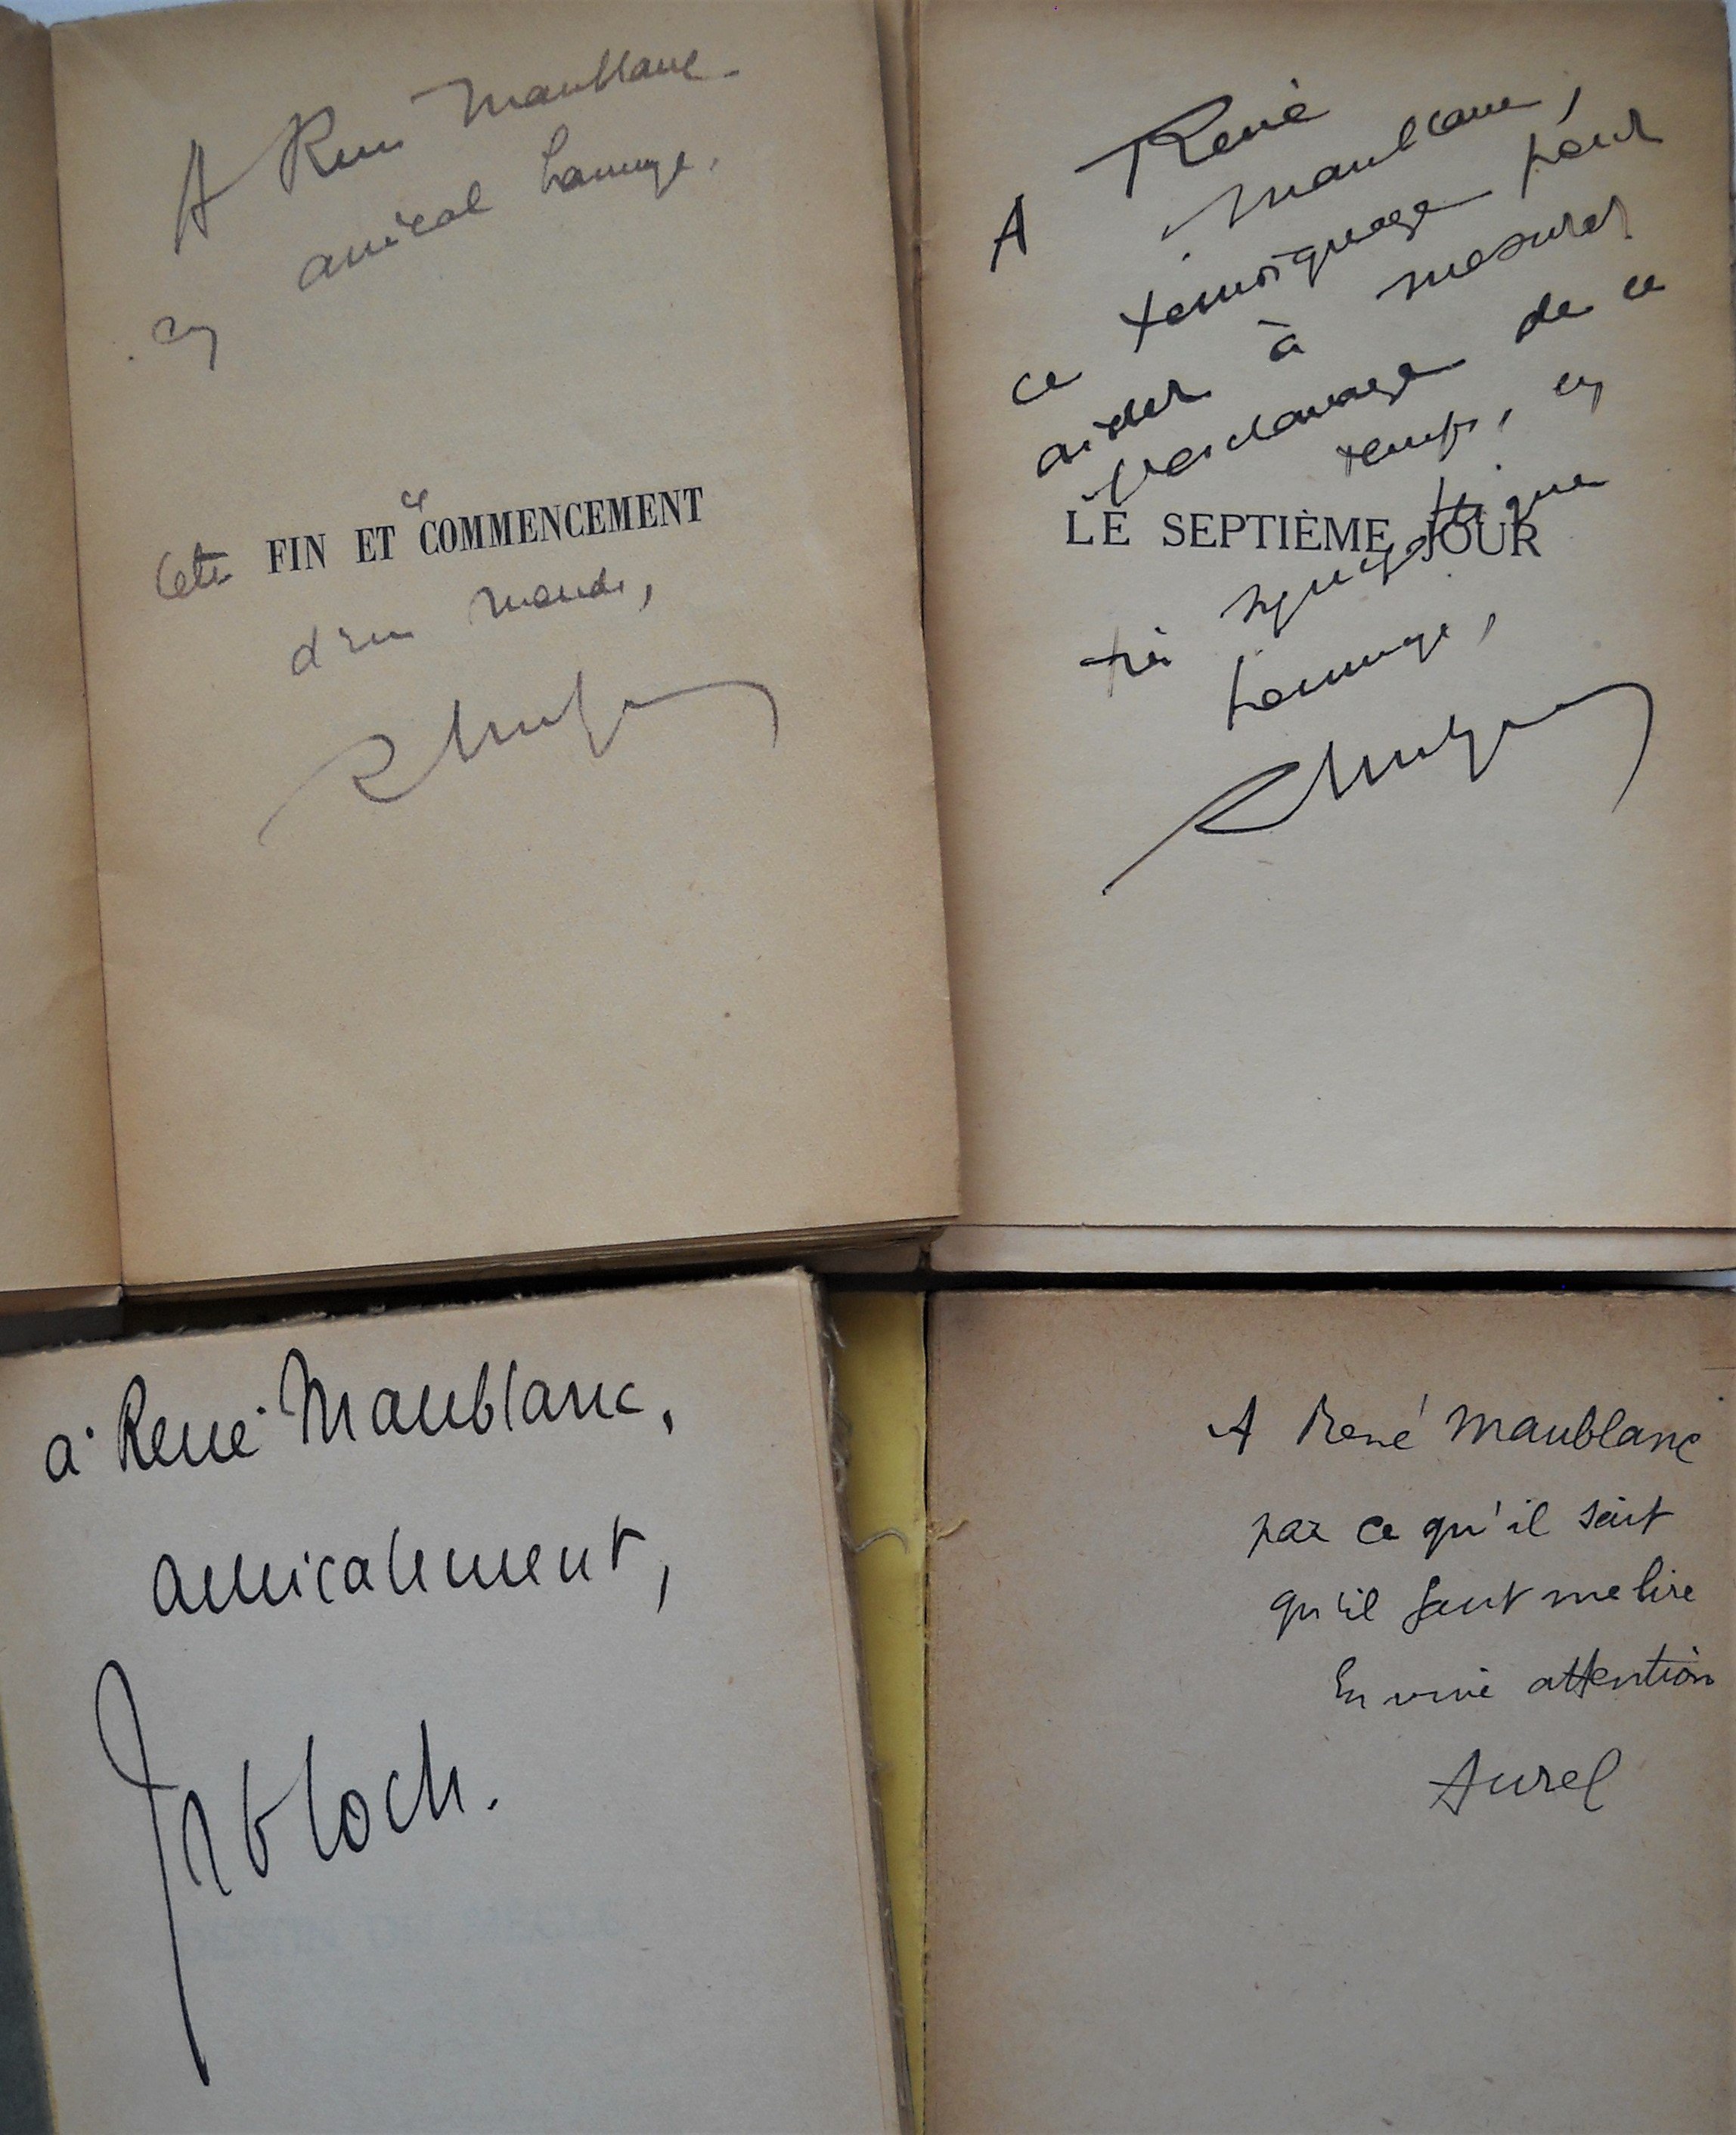 A René Maublanc
en amical hommage,
Cette FIN ET ce COMMENCEMENT
d'un monde,
A René
Maublanc,
ce témoignage pour
aider à mesurer
l'esclavage de ce
temps, en
LE SEPTIÈME JOUR
très sympathique
hommage,
à René Maublanc,
amicalement,
JRBloch.
A René Maublanc
par ce qu'il sait
qu'il faut me lire
En vive attention
Aurel